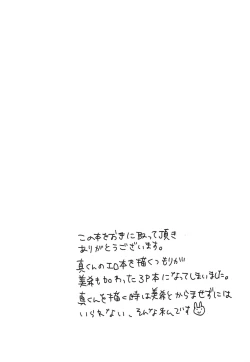 この本をお手に取って頂き
ありがとうございます。
真くんのエロ本を描くつもりが
美希も加わった3P本になってしまいました。
真くんを描く時は美希とからませずには
いられない、そんな私です